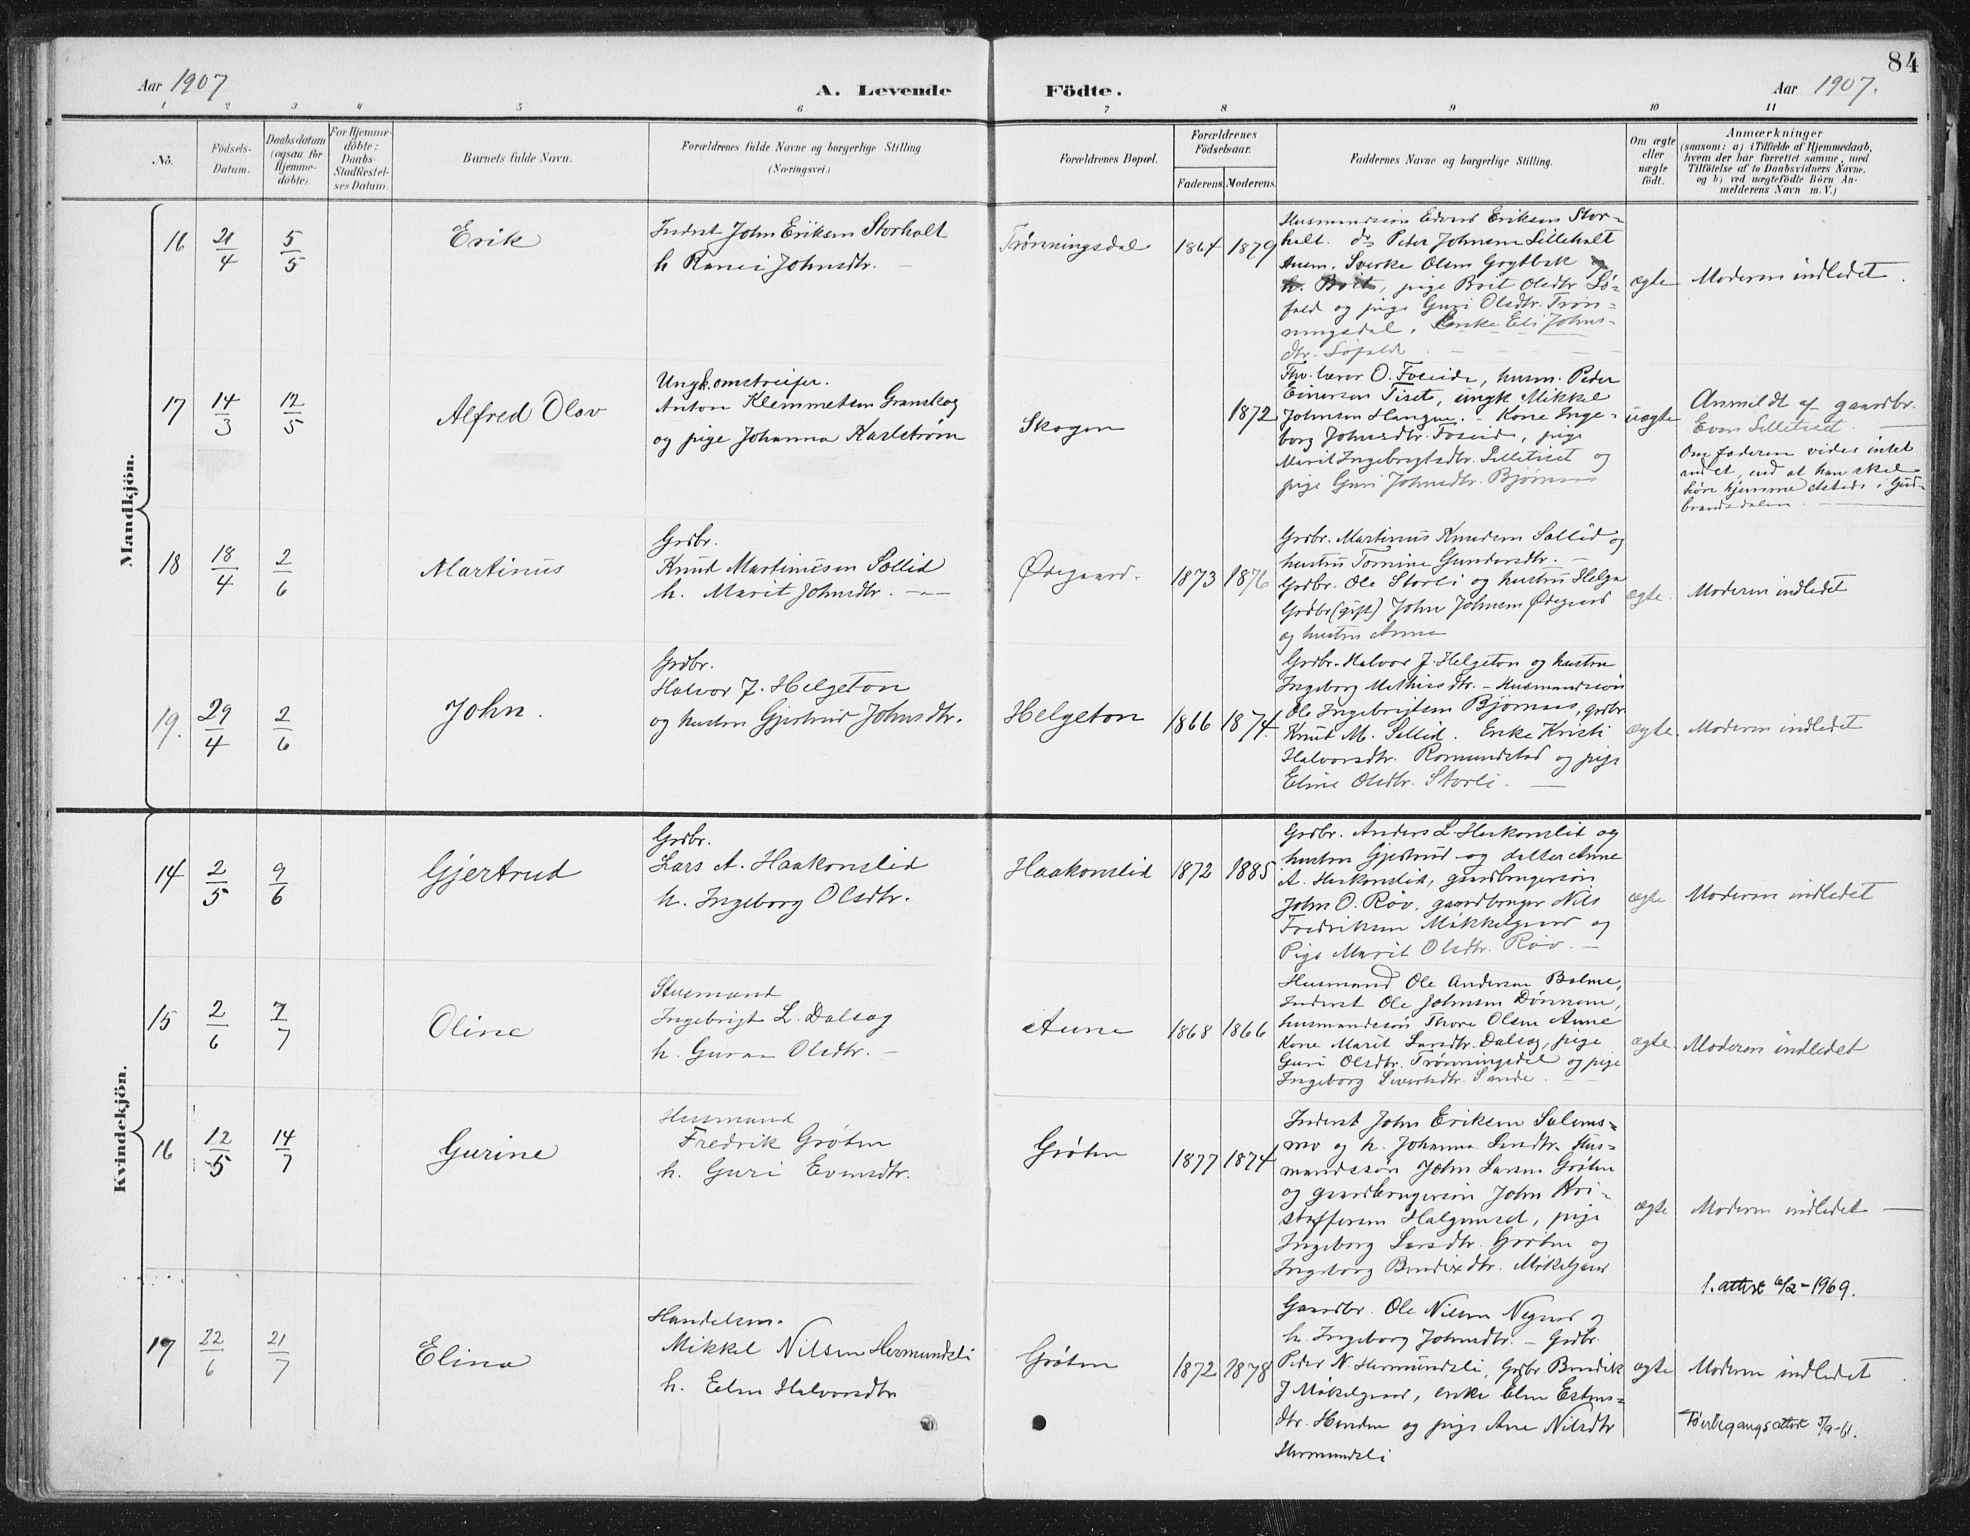 84
Aar 1907
A. Levende Födte.
Aar 1907.
1 2 3 4 5 6 7 8 9 10 11
No.
Födsels-
Datum.
Daabsdatum
(ogsaa for
Hjemme-
döbte).
For Hjemme-
döbte:
Daabs-
Stadfæstel-
ses Datum.
Barnets fulde Navn.
Forældrenes fulde Navne og borgerlige Stilling
(Næringsvei.)
Forældrenes Bopæl.
Forældrenes
Födselsaar.
Faderens. Moderens.
Faddernes Navne og borgerlige Stilling.
Om ægte
eller
uægte
födt.
Anmærkninger
(saasom: a) i Tilfælde af Hjemmedaab,
hvem der har forrettet samme, med
Tilföielse af to Daabsvidners Navne,
og b) ved uægtefödte Börn An-
melderens Navn m. V.)
Mandkjön.
16 21/4 5/5 Erik
Inderst John Eriksen Storholt
h Ranei Johnsdtr.
Trønningsdal 1864 1879
Husmandssøn Edvard Eriksen Stor-
holt. do Peder Johnsen Lilleholt
Sverke Olsen
h. Brit, pige Brit Olsdtr. Sø-
fald og pige Guri Olsdtr. Trøn-
ningsdal. Enke Eli Johns-
dtr. Søfald
ægte Moderen indledet.
17 14/3 12/5 Alfred Olav
Ungk. omstreifer.
Anton Klemmetsen Granskog
og pige Johanna Karlström
Skogen 1872
lærer O. Foseide, husm. Peder
Einersen Tiset, ungk Mikkel
Johnsen Haugen. Kone Inge-
borg Johnsdtr. Foseid, pige
Marit Ingebrigtsdtr. Lilletiset og
pige Guri Johnsdtr. Bjørnaas
uægte
Anmeldt af gaardbr.
Even Lilletiset
Om faderen vides intet
andet, end at han skal
høre hjemme etsteds i Gud-
brandsdalen.
18 18/4 2/6 Martinus
Grdbr.
Knud Martinussen Sollid
h. Marit Johnsdtr.
Ødegaard. 1873 1876
Grdbr. Martinus Knudsen Sollid og
hustru Tomine Gundersdtr.
Grdbr. Ole Storli og hustru Helga
Grdbr (gift) John Johnsen Ødegaard
og hustru Anna
ægte. Moderen indledet
19. 29/4 2/6 John.
Grdbr.
Halvor J. Helgeton
og hustru Gjertrud Johnsdtr.
Helgeton 1866 1874.
Grdbr. Halvor J. Helgeton og hustru
Ingeborg Mathisdtr. – Husmandssøn
Ole Ingebrigtsen Bjørnaas, grdbr
Knud M. Sollid. Enke Kristi
Halvorsdtr. Romundstad og pige
Eline Olsdtr. Storli.
ægte. Moderen indledet
Kvindekjön.
14 2/5 9/6 Gjertrud
Grdbr.
Lars A. Haakonslid
h. Ingeborg Olsdtr.
Haakonslid 1872 1885
Grdbr. Anders L. Haakonslid og
hustru Gjertrud og datter Anne
A. Haakonslid, gaardbrugersøn
John O. Røv, gaardbruger Nils
Fredriksen Mikkelgaard og
Pige Marit Olsdtr. Røv.
ægte Moderen indledet
15 2/6 7/7 Oline
Stuemand
Ingebrigt L. Dalsøg
h. Guraa Olsdtr.
Aune 1868 1866
Husmand Ole Andersen Bolme,
Inderst Ole Johnsen Dønnem,
husmandssøn Thore Olsen Aune
Kone Marit Larsdtr. Dalsøg, pige
Guri Olsdtr. Trønningsdal og pige
Ingeborg Sivertsdtr. Sande.
ægte. Moderen indledet
16 12/5 14/7 Gurine
Husmand
Fredrik Grøten
h. Guri Evensdtr.
Grøten 1877 1874
Inderst John Eriksen Solems-
mo og h. Johanna Larsdtr. Hus-
mandssøn John Larsen Grøten
og gaardbrugersøn John Kri-
stoffersen Halgunset, pige
Ingeborg Larsdtr. Grøten og
Ingeborg Bendixdtr. Mikelgaard
ægte Moderen indledet
1. attest 6/2-1969.
17 22/6 21/7 Elina
Handelsm.
Mikkel Nilsen Hermundsli
h. Elen Halvorsdtr
Grøten 1872 1878
Gaardbr. Ole Nilsen Nygaard og
h. Ingeborg Johnsdtr. – Grdbr.
Peder N. Hermundsli, Grdbr. Bendik
J Mikelgaard, enke Elen Estens-
dtr. Honden og pige Ane Nilsdtr
Hermundsli
ægte Moderen indledet